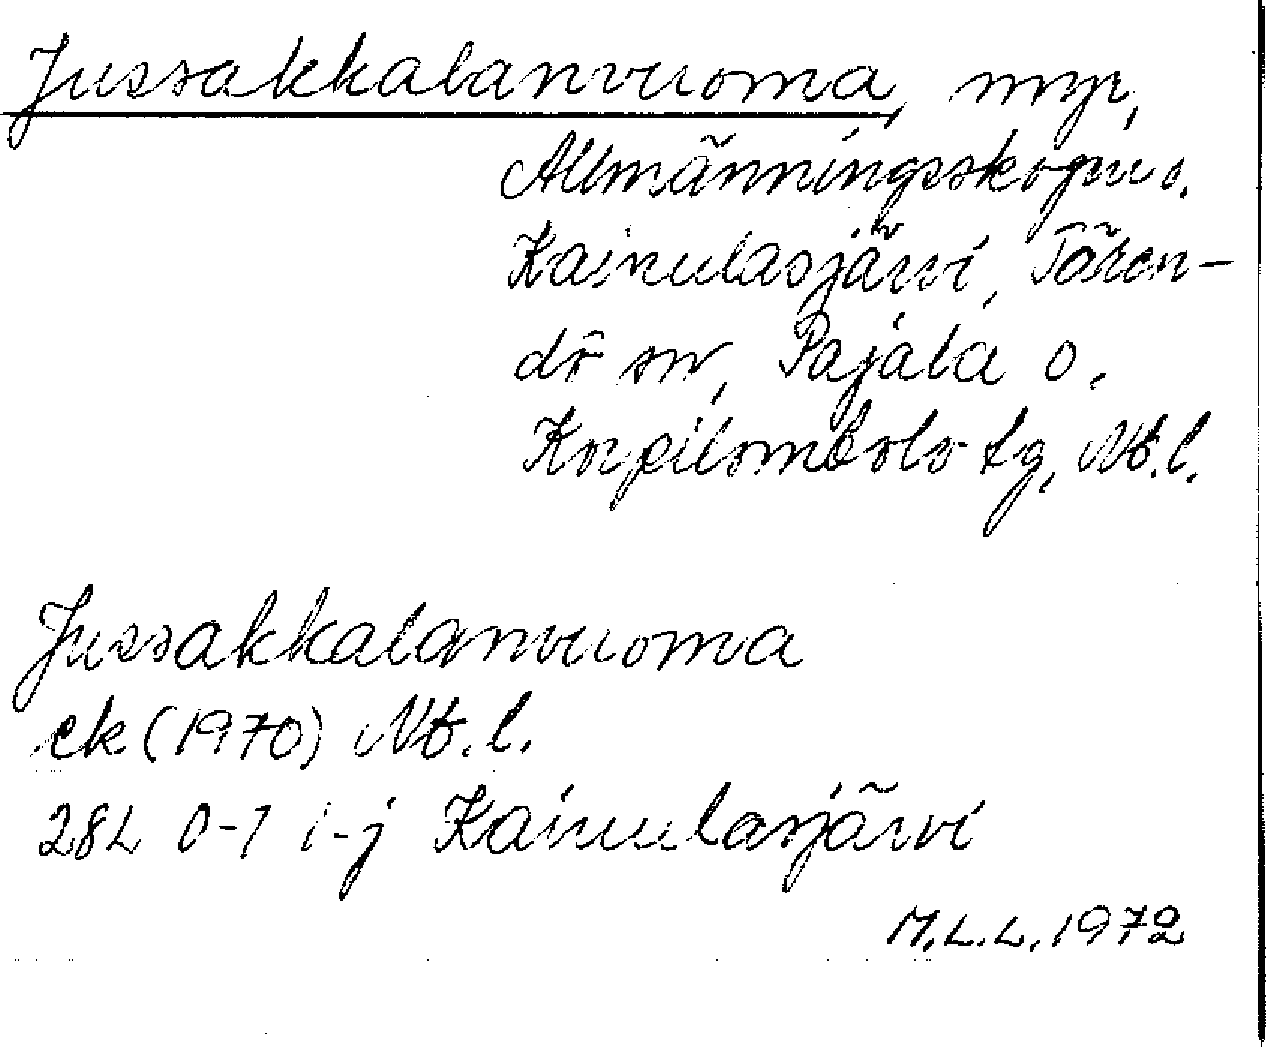 Jussakkalanvuoma, myr,
Allmänningsskogen o.
Kainulasjärvi, Tären-
dö sn, Pajala o.
Korpilombolo tg, Nb.l.
Jussakkalanvuoma
ek (1970) Nb.l.
28L 0-1 i-j Kainulasjärvi
M.L.L. 1972